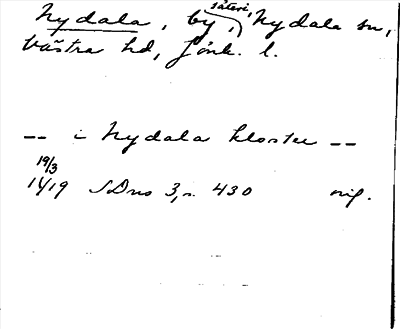 Nydala, by, säteri, Nydala sn,
Västra hd, Jönk. l.
-- i Nydala kloster --
19/3
1419 SDns 3, s. 430 orig.